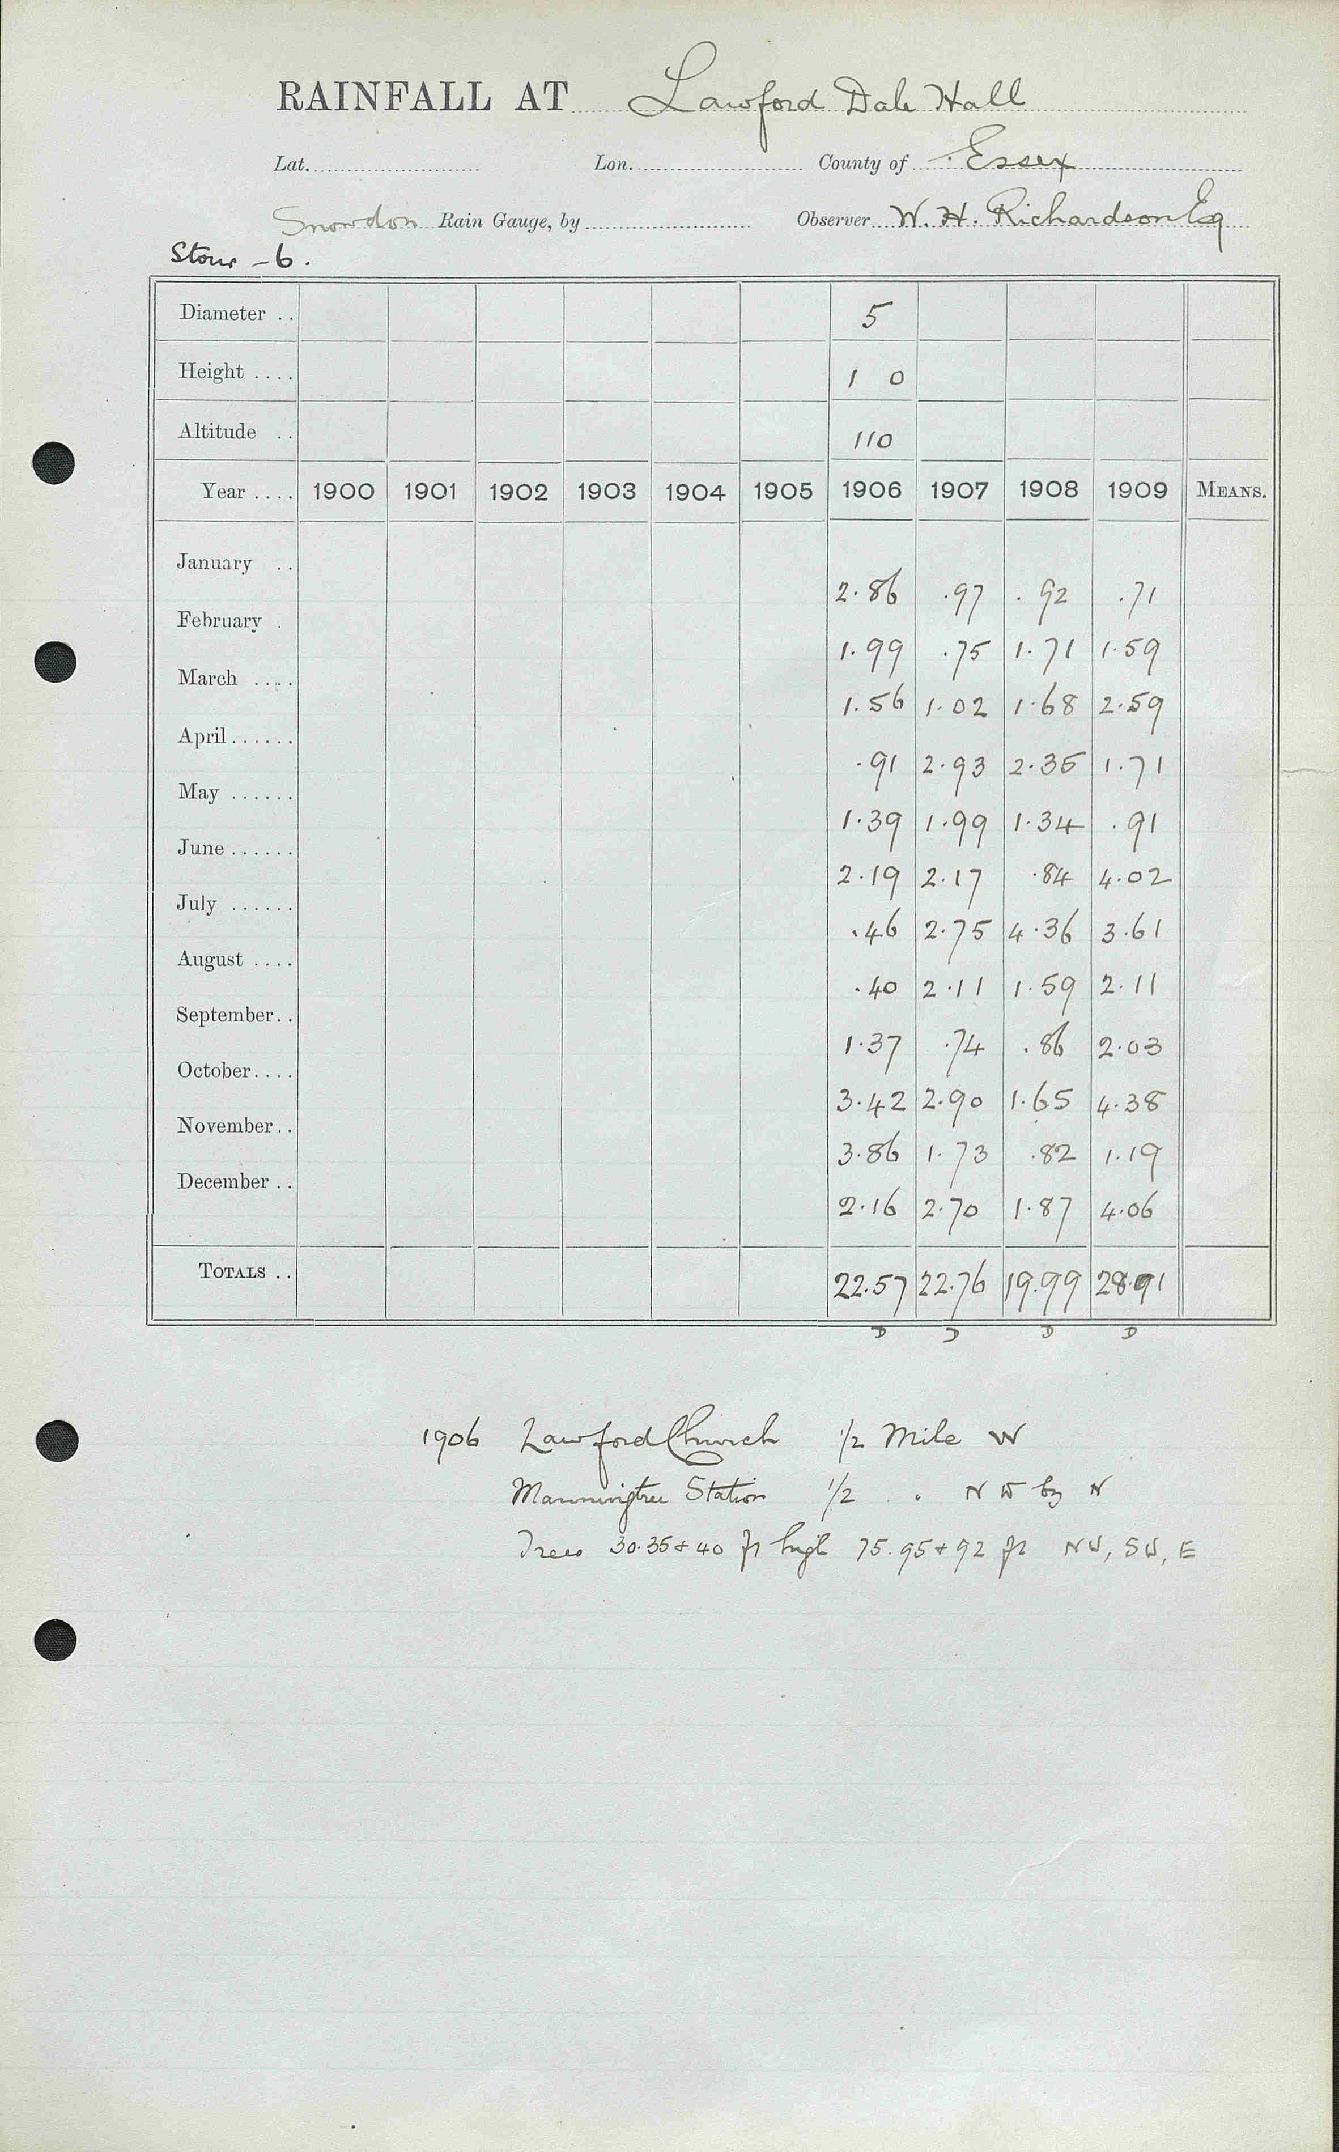 RAINFALL AT Lawford Dale Hall
Lat. Lon. County of Essex
Snowdon Rain Gauge, by Observer W. H. Richardson Esq
Stour - 6.
Diameter .. 5
Height .... 1 0
Altitude .. 110
Year .... 1900 1901 1902 1903 1904 1905 1906 1907 1908 1909 MEANS.
January .. 2.86 .97 .92 .71
February . 1.99 .75 1.71 1.59
March .... 1.56 1.02 1.68 2.59
April...... .91 2.93 2.35 1.71
May ...... 1.39 1.99 1.34 .91
June ...... 2.19 2.17 .84 4.02
July ...... .46 2.75 4.36 3.61
August .... .40 2.11 1.59 2.11
September.. 1.37 .74 .86 2.03
October.... 3.42 2.90 1.65 4.38
November.. 3.86 1.73 .82 1.19
December .. 2.16 2.70 1.87 4.06
TOTALS .. 22.57 22.76 19.99 28.91
D D D D
1906 Lawford Church 1/2 Mile W
Manningtree Station 1/2 . . N W by N
Trees 30.35 & 40 ft high 75.95 + 92 ft NW, SW, E